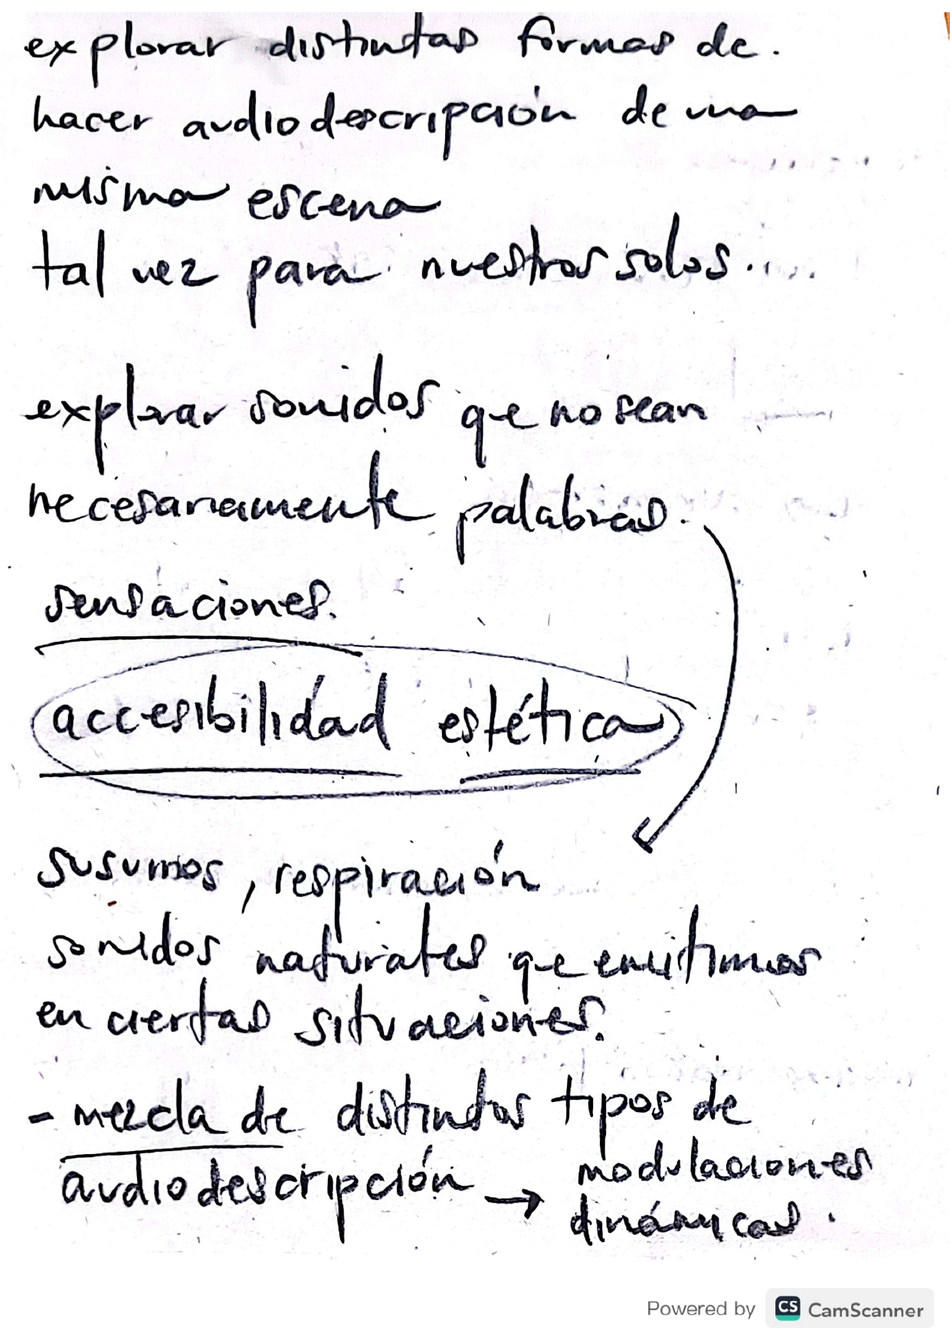 explorar distintas formas de.
hacer audiodescripción de una
misma escena
tal vez para nuestros solos....
explorar sonidos que no sean
necesariamente palabras.
sensaciones.
accesibilidad estética
susurros, respiración
sonidos naturales que emitimos
en ciertas situaciones.
- mezcla de distintos tipos de
audiodescripción → modulaciones
dinámicas.
Powered by CS CamScanner